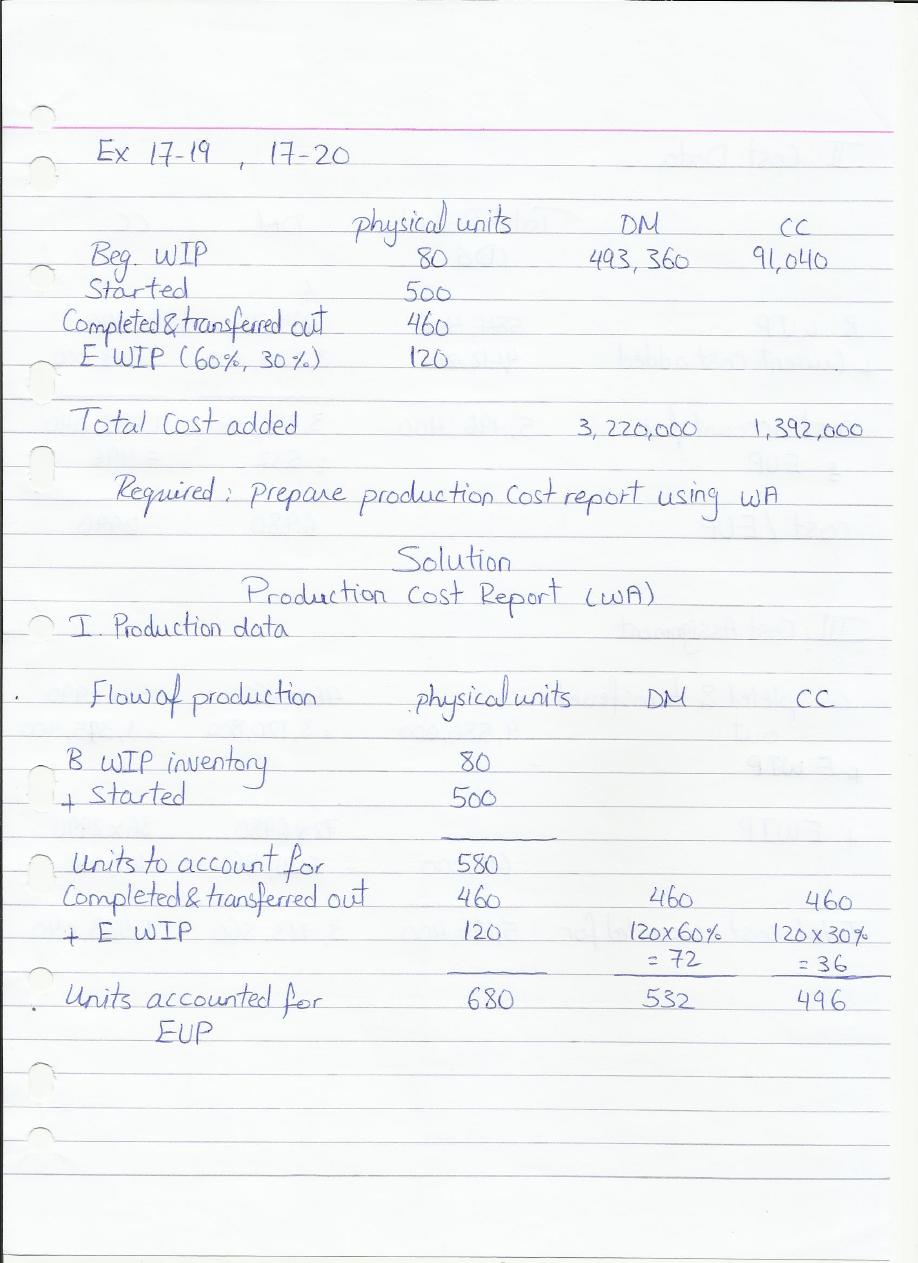 Ex 17-19 , 17-20
physical units DM CC
Beg. WIP 80 493,360 91,040
Started 500
Completed & transferred out 460
E WIP (60%, 30%) 120
Total Cost added 3,220,000 1,392,000
Required: prepare production cost report using WA
Solution
Production Cost Report (WA)
I. Production data
Flow of production physical units DM CC
B WIP inventory 80
+ Started 500
Units to account for 580
Completed & transferred out 460 460 460
+ E WIP 120 120x60% 120x30%
= 72 = 36
Units accounted for 680 532 496
EUP